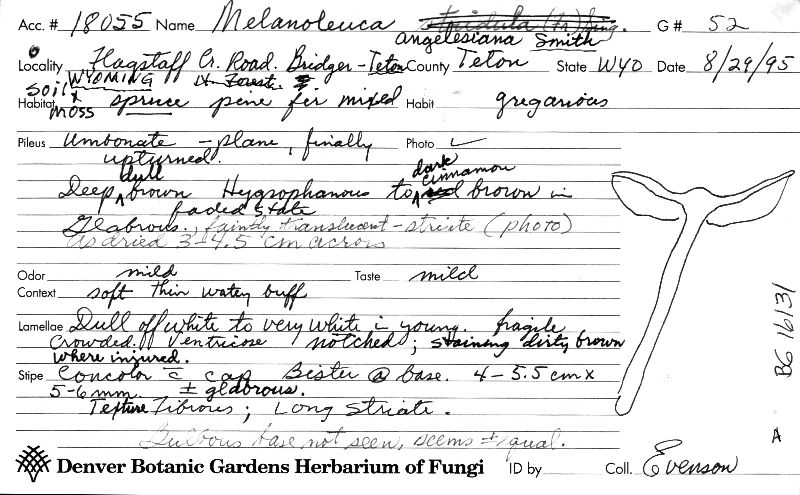 Acc. # 18055 Name Melanoleuca G # 52
angelesiana Smith
Locality Flagstaff Cr. Road. Bridger-Teton County Teton State WYO Date 8/29/95
WYOMING N. Forest
Soil +
Moss
Habitat spruce pine fir mixed Habit gregarious
Pileus Umbonate - plane, finally Photo ✓
upturned.
Deep dull brown Hygrophanous to dark cinnamon brown in
faded state
Glabrous, faintly translucent-striate (photo)
as dried 3-4.5 cm across
Odor mild Taste mild
Context soft thin watery buff
Lamellae Dull off white to very white in young. fragile
Crowded. Ventricose notched; staining dirty brown
where injured.
Stipe Concolor c̄ cap Bister @ base. 4-5.5 cm x
5-6 mm. ± glabrous.
Texture Fibrous; Long Striate.
Bulbous base not seen, seems ± equal.
Denver Botanic Gardens Herbarium of Fungi ID by Coll. Evenson
BG 16131
A